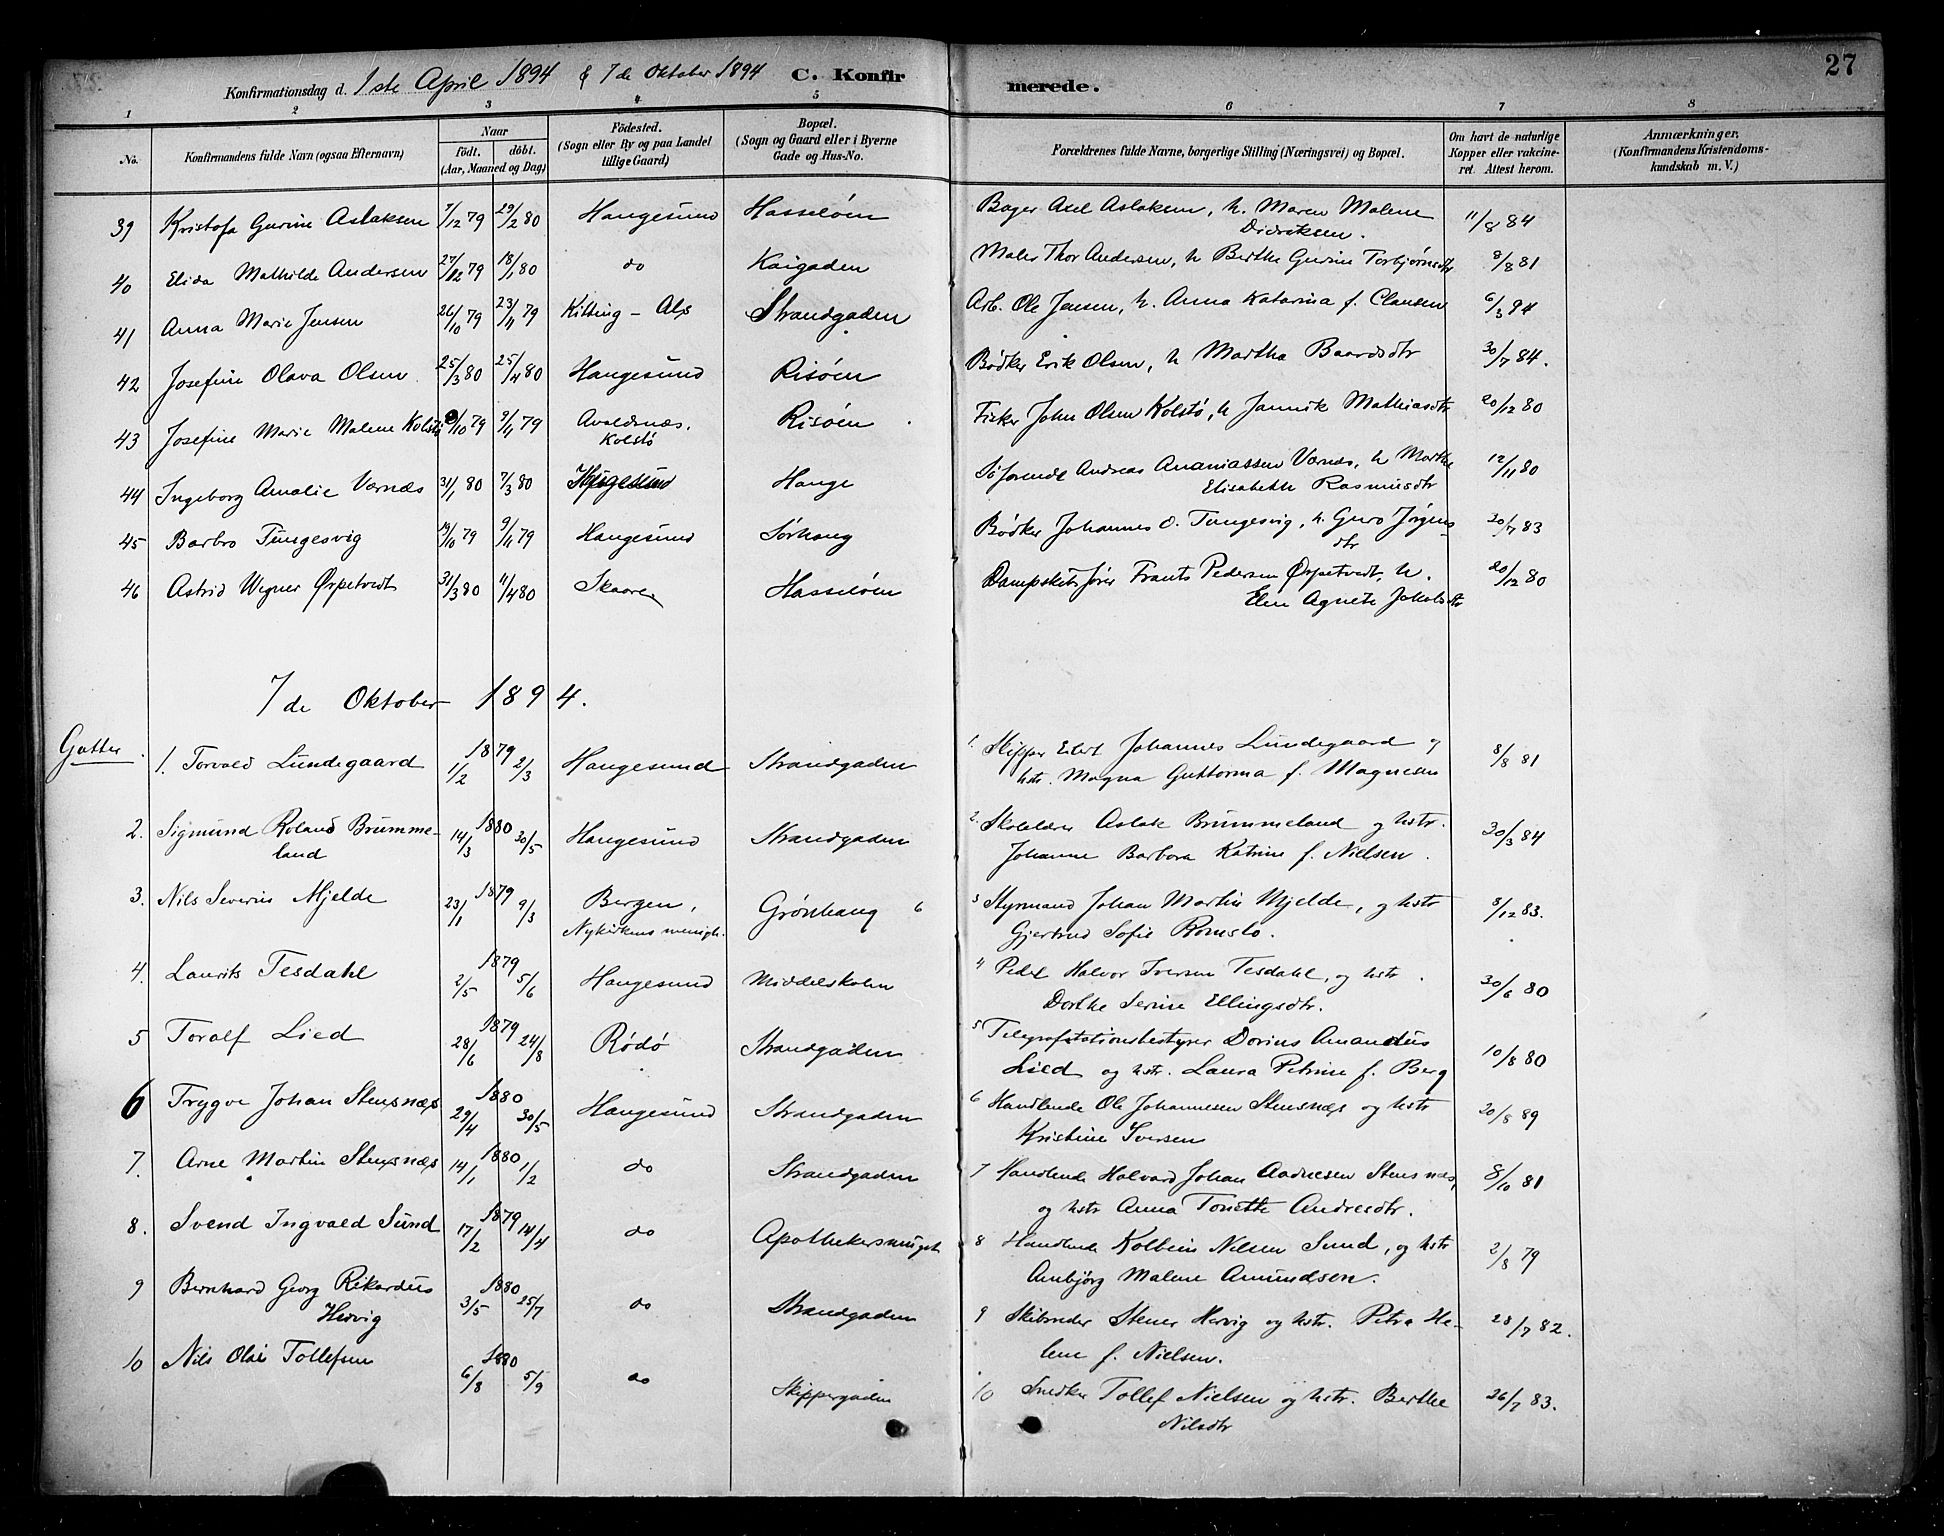 27
Konfirmationsdag d. 1ste April 1894 & 7de Oktober 1894 C. Konfirmerede.
1 2 3 4 5 6 7 8
No.
Konfirmandens fulde Navn (ogsaa Efternavn)
Naar
födt. döbt.
(Aar, Maaned og Dag)
Födested.
(Sogn eller By og paa Landet
tillige Gaard)
Bopæl.
(Sogn og Gaard eller i Byerne
Gade og Hus-No.
Forældrenes fulde Navne, borgerlige Stilling (Næringsvei) og Bopæl.
Om havt de naturlige
Kopper eller vakcine-
ret. Attest herom.
Anmærkninger.
(Konfirmandens Kristendoms-
kundskab m. V.)
39 Kristofa Gurine Aslaksen 7/12 79 29/2 80 Haugesund Hasseløen Bager Axel Aslaksen, h. Maren Malene 11/8 84
Didriksen.
40 Elida Mathilde Andersen 27/12 79 18/1 80 do Kaigaden Maler Thor Andersen, h Berthe Gurine Torbjørnsdtr 8/8 81
41 Anna Marie Jensen 26/10 79 23/11 79 Kitting - Als Strandgaden Arb. Ole Jensen, h. Anna Katarina f. Clausen 6/3 94
42 Josefine Olava Olsen 25/3 80 25/4 80 Haugesund Risøen Bødker Erik Olsen, h Martha Baardsdtr 30/7 84.
43 Josefine Marie Malene Kolstø /10 79 9/11 79 Avaldsnæs, Risøen Fisker John Olsen Kolstø, h Jannik Mathiasdtr 20/12 80
Kolstø
44 Ingeborg Amalie Værnæs 31/1 80 7/3 80 Haugesund Hauge Søfarende Andreas Ananiassen Værnæs, h Marthe 12/11 80
Elisabeth Rasmusdtr
45 Barbro Tungesvig 19/10 79 9/11 79 Haugesund Sørhaug Bødker Johannes O. Tungesvig, h. Guro Jørgens- 30/7 83
dtr
46 Astrid Wegner Ørpetvedt 31/3 80 11/4 80 Skaare Hasseløen Dampskibsfører Frants Pedersen Ørpetvedt, h. 20/12 80
Elen Agnete Jakobsdtr
7de Oktober 1894.
Gutter.
1. Torvald Lundegaard 1879 1/2 2/3 Haugesund Strandgaden 1. Skipper Eilert Johannes Lundegaard og 8/8 81
hstr. Magna Guttorma f. Magnesen
2. Sigmund Roland Brumme- 1880 14/3 30/5 Haugesund Strandgaden 2. Skolelærer Aslak Brummeland og hstr. 30/3 84
land Johanne Barbora Katrine f. Nielsen.
3. Nils Severin Mjelde 1879 23/1 9/3 Bergen, Grønhaug 6 3 Styrmand Johan Martin Mjelde, og hstr 8/12 83.
Nykirkens menigh. Gjertrud Sofie Romslo.
4. Laurits Tesdahl 1879 2/5 5/6 Haugesund Middelskolen 4 Pedel Halvor Iversen Tesdahl, og hstr. 30/6 80
Dorthe Serine Ellingsdtr.
5 Toralf Lied 1879 28/6 24/8 Rödö Strandgaden 5 Telegrafstationsbestyrer Dorius Amandus 10/8 80
Lied og hstr. Laura Petrine f. Berg
6 Trygve Johan Stensnæs 1880 29/4 30/5 Haugesund Strandgaden 6 Handlende Ole Johannesen Stensnæs og hstr 20/8 89
Kristine Iversen
7. Arne Martin Stensnæs 1880 14/1 1/2 do Strandgaden 7 Handlende Halvard Johan Aadnesen Stensnæs, 8/10 81
og hstr Anna Tonette Andresdtr.
8. Svend Ingvald Sund 1879 17/2 14/4 do Apothekersmuget 8 Handlende Kolbein Nilsen Sund, og hstr 2/8 79
Anbjørg Malene Amundsen.
9 Bernhard Georg Rikardus 1880 3/5 25/7 do Strandgaden 9 Skibsreder Stener Hervig og hstr. Petra He- 28/7 82.
Hervig lene f. Nielsen.
10 Nils Olai Tollefsen 1880 6/8 5/9 do Skippergaden 10 Snedker Tollef Nielsen og hstr. Berthe 26/7 83.
Nilsdtr